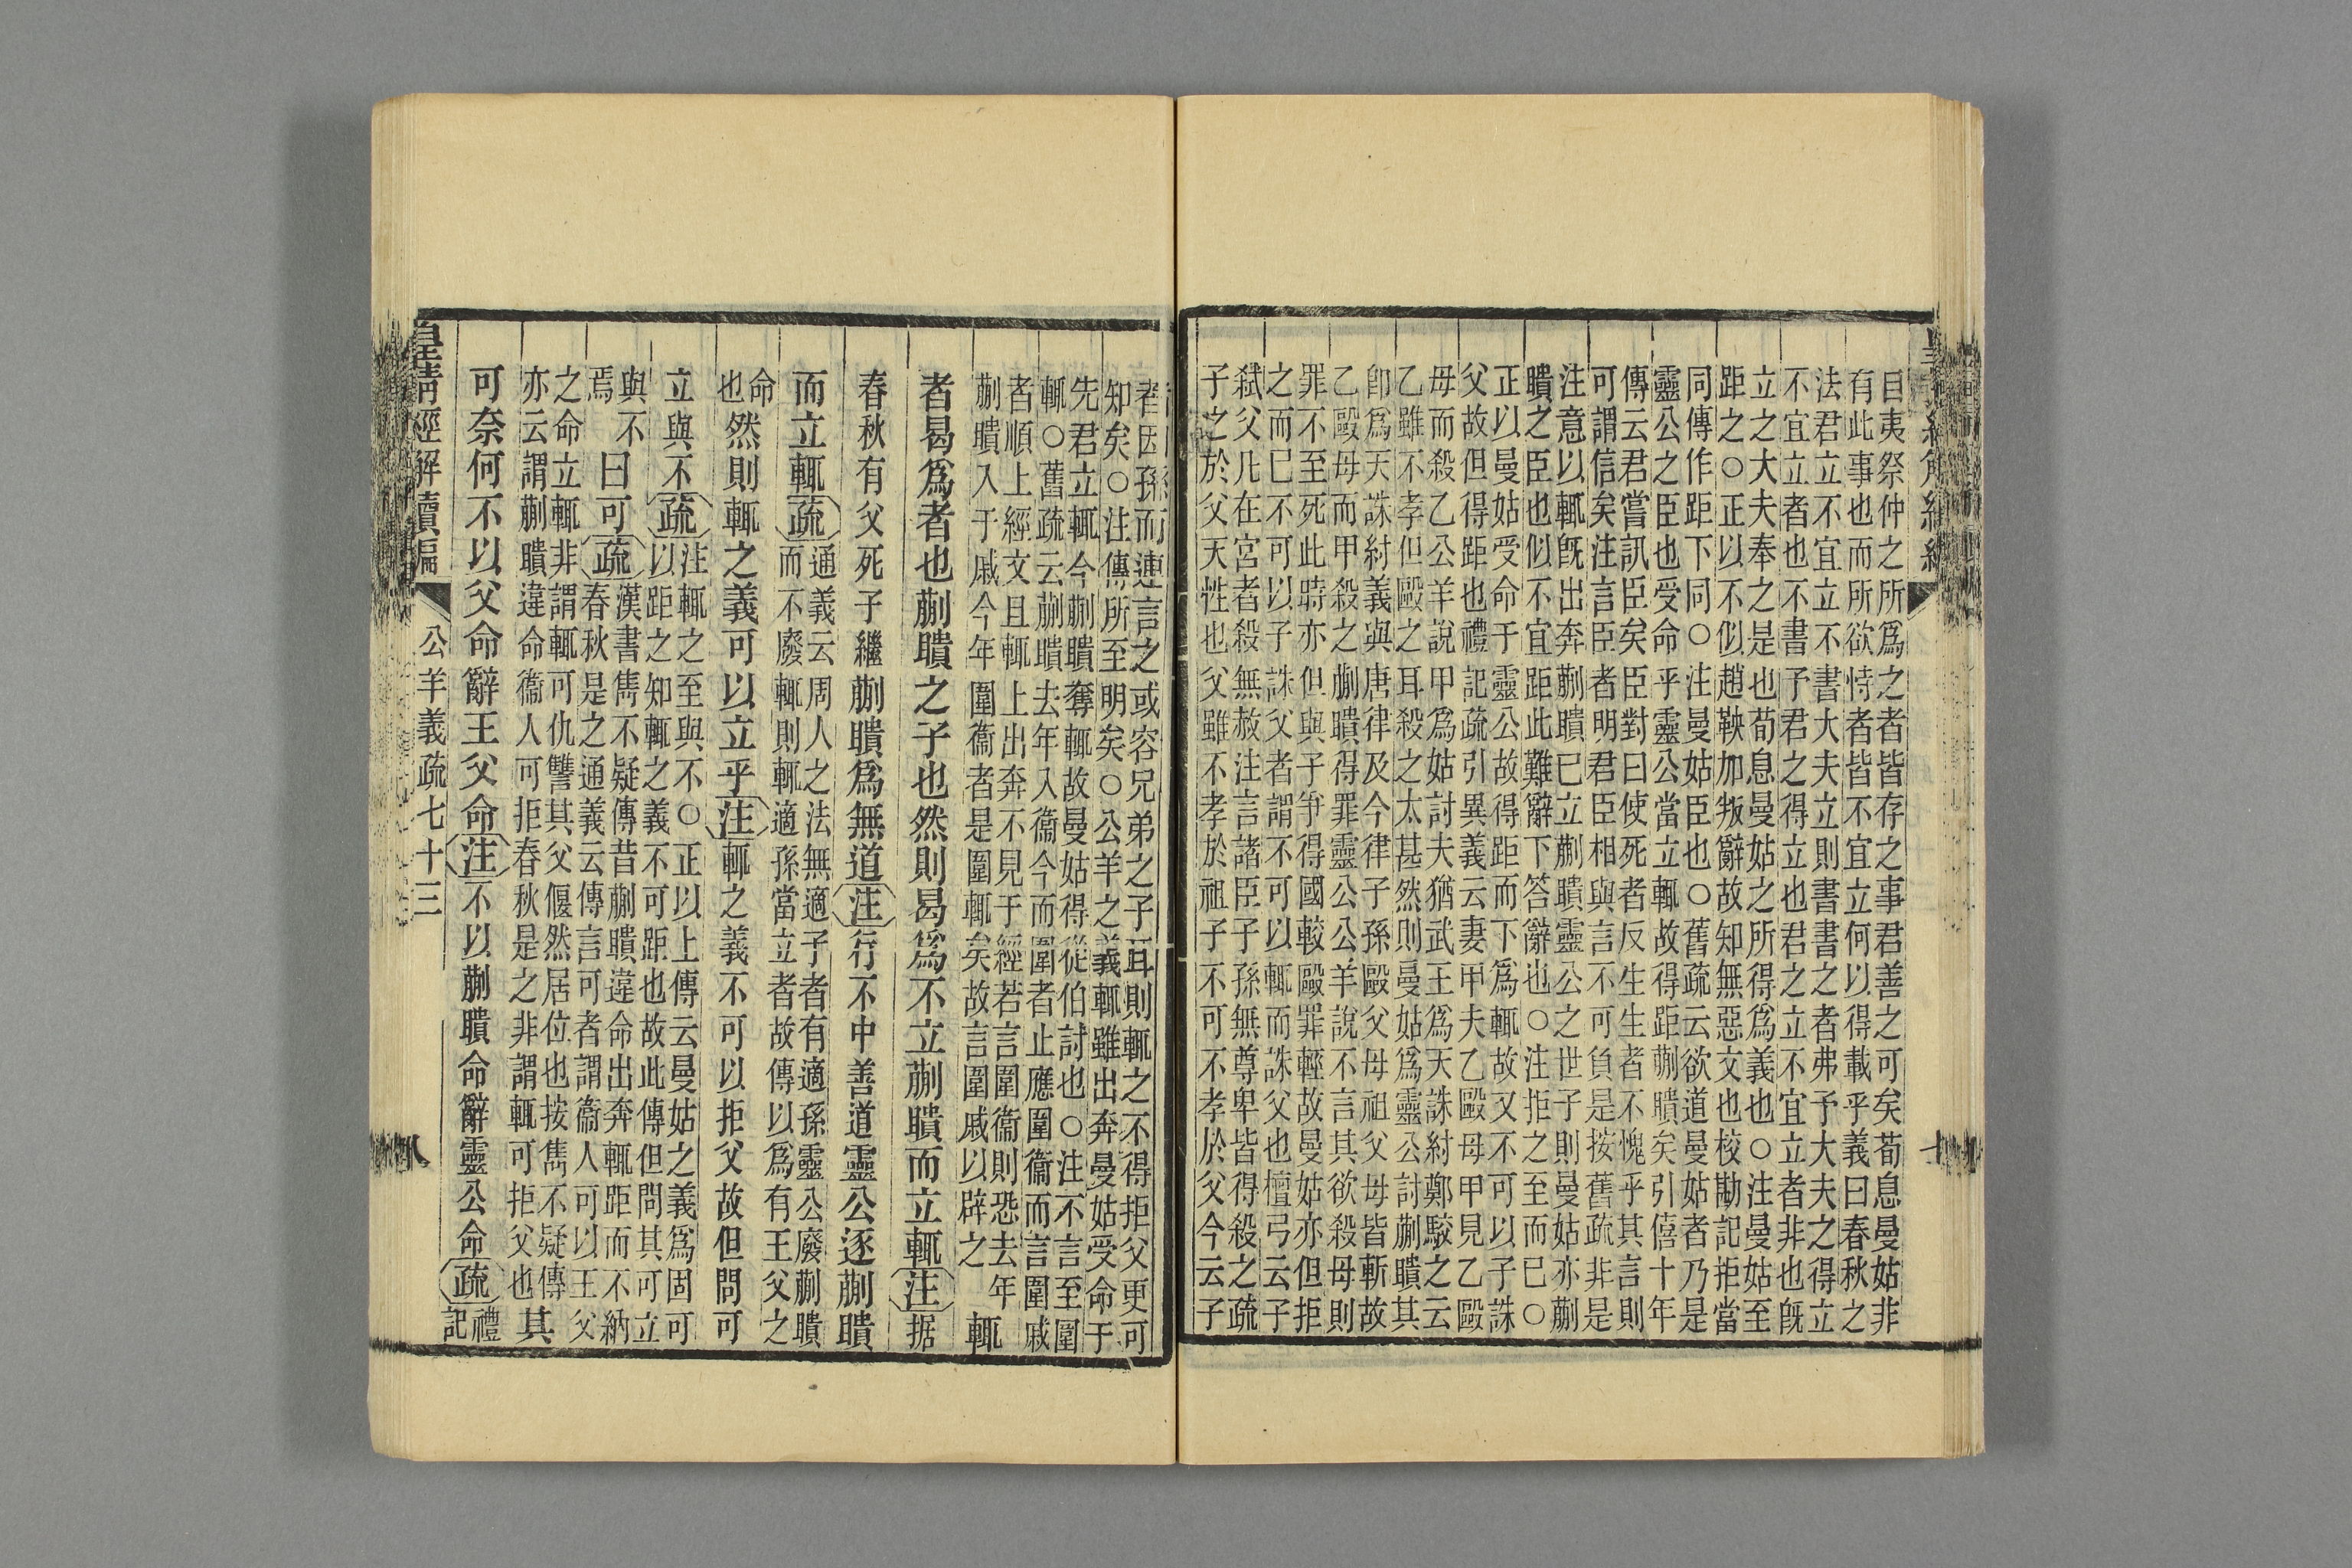 目夷祭仲之所爲之者皆存之事君善之可矣荀息曼姑非
有此事也而所欲恃者皆不宜立何以得載乎義曰春秋之
法君立不宜立不書大夫立則書書之者弗予大夫之得立
不宜立者也不書予君之得立也君之立不宜立者非也旣
立之大夫奉之是也荀息曼姑之所得爲義也○注曼姑至
距之○正以不似趙鞅加叛辭故知無惡文也校勘記拒當
同傳作距下同○注曼姑臣也○舊疏云欲道曼姑者乃是
靈公之臣也受命乎靈公當立輒故得距蒯聵矣引僖十年
傳云君嘗訊臣矣臣對曰使死者反生生者不愧乎其言則
可謂信矣注言臣者明君臣相與言不可負是按舊疏非是
注意以輒旣出奔蒯聵已立蒯聵靈公之世子則曼姑亦蒯
聵之臣也似不宜距此難辭下答辭也○注拒之至而已○
正以曼姑受命于靈公故得距而下爲輒故又不可以子誅
父故但得距也禮記疏引異義云妻甲夫乙毆母甲見乙毆
母而殺乙公羊說甲爲姑討夫猶武王爲天誅紂鄭駮之云
乙雖不孝但毆之耳殺之太甚然則曼姑爲靈公討蒯聵其
卽爲天誅紂義與唐律及今律子孫毆父母祖父母皆斬故
乙毆母而甲殺之蒯聵得罪靈公公羊說不言其欲殺母則
罪不至死此時亦但與子爭得國較毆罪輕故曼姑亦但拒
之而已不可以子誅父者謂不可以輒而誅父也檀弓云子
弒父凡在宮者殺無赦注言諸臣子孫無尊卑皆得殺之疏
子之於父天性也父雖不孝於祖子不可不孝於父今云子
者因孫而連言之或容兄弟之子耳則輒之不得拒父更可
知矣○注傳所至明矣○公羊之義輒雖出奔曼姑受命于
先君立輒今蒯聵奪輒故曼姑得從伯討也○注不言至圍
輒○舊疏云蒯聵去年入衞今而圍者止應圍衞而言圍戚
者順上經文且輒上出奔不見于經若言圍衞則恐去年
蒯聵入于戚今年圍衞者是圍輒矣故言圍戚以辟之 輒
者曷爲者也蒯聵之子也然則曷爲不立蒯聵而立輒注据
春秋有父死子繼蒯聵爲無道注行不中善道靈公逐蒯聵
而立輒疏通義云周人之法無適子者有適孫靈公廢蒯聵
而不廢輒則輒適孫當立者故傳以爲有王父之
命
也然則輒之義可以立乎注輒之義不可以拒父故但問可
立與不疏注輒之至與不○正以上傳云曼姑之義爲固可
以距之知輒之義不可距也故此傳但問其可立
與不
焉曰可疏漢書雋不疑傳昔蒯聵違命出奔輒距而不納
春秋是之通義云傳言可者謂衞人可以王父
之命立輒非謂輒可仇讐其父偃然居位也按雋不疑傳
亦云謂蒯聵違命衞人可拒春秋是之非謂輒可拒父也 其
可奈何不以父命辭王父命注不以蒯聵命辭靈公命疏禮
記
皇淸經解續編
公羊義疏七十三
八